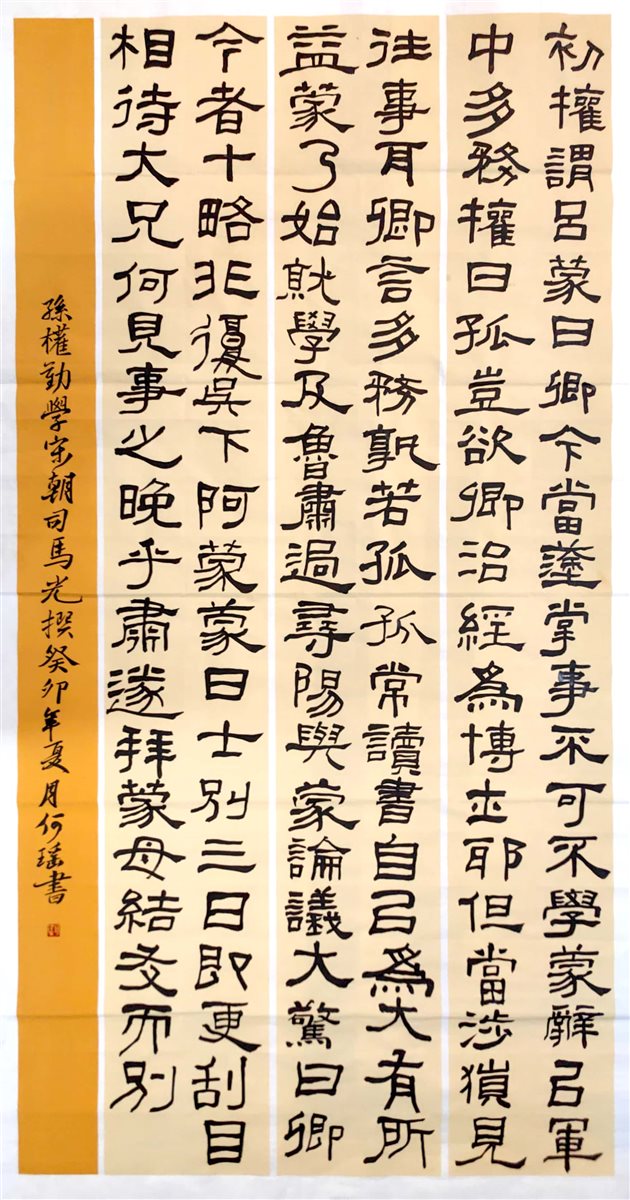 初權謂呂蒙曰卿今當塗掌事不可不學蒙辭㠯軍
中多務權曰孤豈欲卿治經爲博士耶但當涉獵見
往事耳卿言多務孰若孤孤常讀書自㠯爲大有所
益蒙乃始就學及魯肅過尋陽與蒙論議大驚曰卿
今者才略非復吳下阿蒙蒙曰士別三日即更刮目
相待大兄何見事之晚乎肅遂拜蒙母結友而別
孫權勤學宋朝司馬光撰癸卯年夏月何瑶書